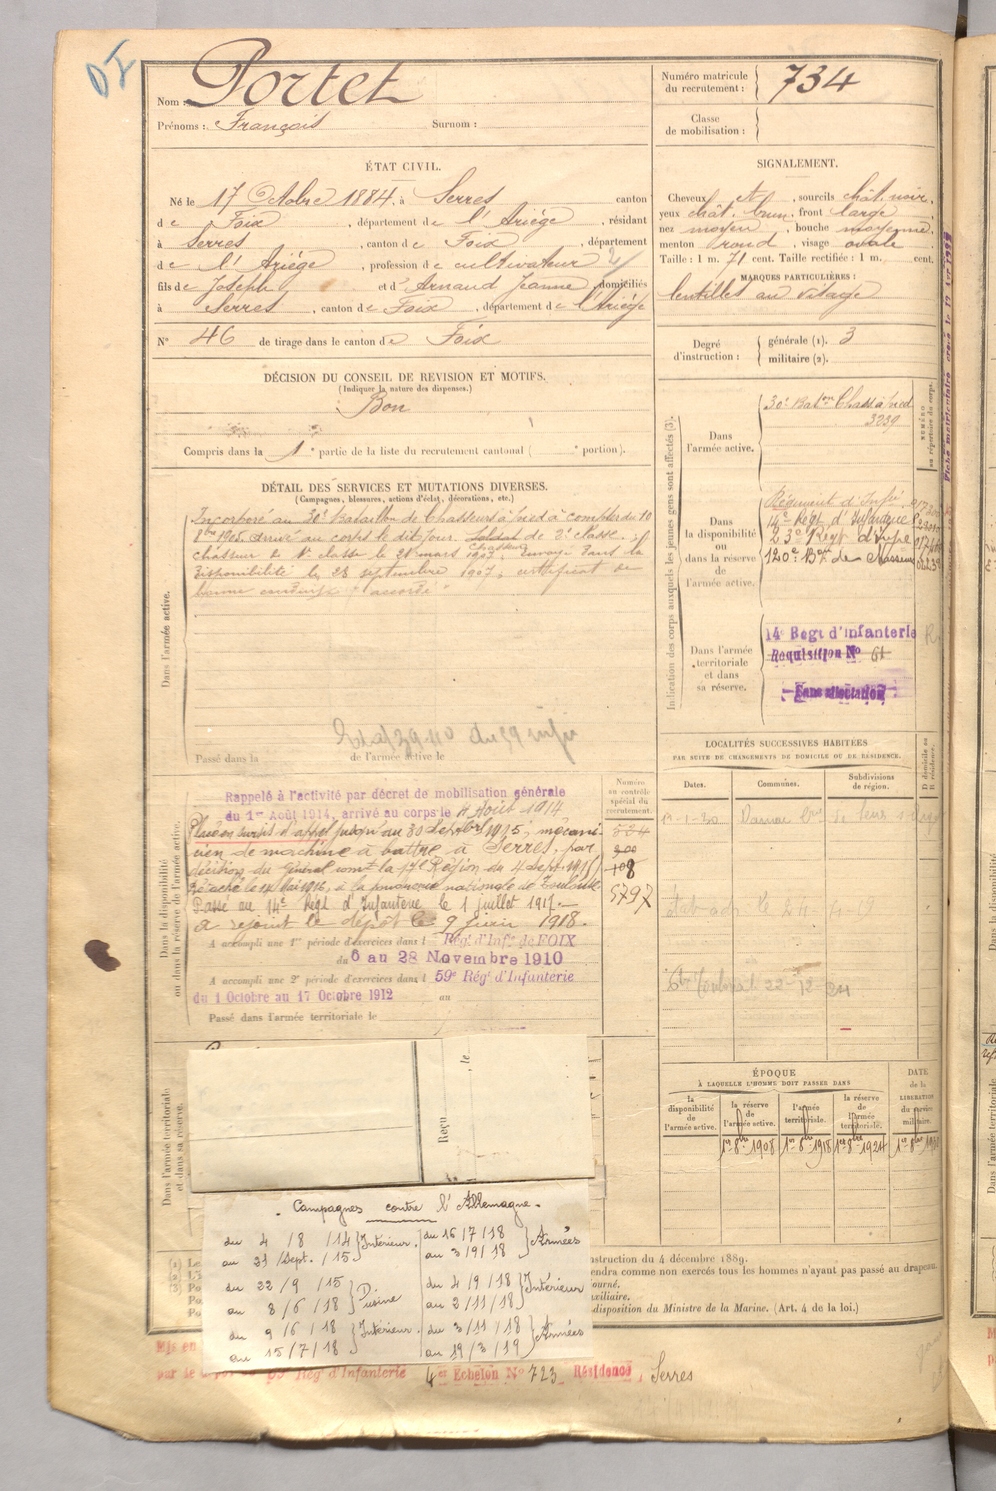 Nom : Portet
Prénoms : François Surnom :
Numéro matricule du recrutement : 734
Classe de mobilisation :
ÉTAT CIVIL.
Né le 17 Octobre 1884, à Serres canton
de Foix, département de l'Ariége, résidant
à Serres, canton de Foix, département
de l'Ariége, profession de cultivateur
fils de Joseph et d'Arnaud Jeanne, domiciliés
à Serres, canton de Foix, département de l'Ariége
N° 46 de tirage dans le canton de Foix
SIGNALEMENT.
Cheveux et, sourcils chât. noir,
yeux chât. brun, front large,
nez moyen, bouche moyenne,
menton rond, visage ovale
Taille : 1 m. 71 cent. Taille rectifiée : 1 m. cent.
MARQUES PARTICULIÈRES :
lentilles au visage
Degré d'instruction : générale (1). 3
militaire (2).
DÉCISION DU CONSEIL DE REVISION ET MOTIFS.
(Indiquer la nature des dispenses.)
Bon
Compris dans la 1e partie de la liste du recrutement cantonal ( e portion).
DÉTAIL DES SERVICES ET MUTATIONS DIVERSES.
(Campagnes, blessures, actions d'éclat, décorations, etc.)
Dans l'armée active.
Incorporé au 30e Bataillon de Chasseurs à pied à compter du 10
8bre 1905. arrivé au corps le dit jour. Soldat de 2e classe.
Chasseur
chasseur de 1e classe le 21 mars 1907, envoyé dans la
disponibilité le 28 septembre 1907, certificat de
bonne conduite accordé
Passé dans la de l'armée active le
Indication des corps auxquels les jeunes gens sont affectés (3).
NUMÉRO au répertoire du corps.
Dans l'armée active. 30e Baton Chass à pied
3239
Dans la disponibilité ou dans la réserve de l'armée active.
Régiment d'Infie
14e Régt d'Infanterie
23e Régt d'Infie
120e Bon de Chasseurs
Dans l'armée territoriale et dans sa réserve.
14e Regt d'Infanterie
Requisition No 61
Sans affectation
Dans la disponibilité ou dans la réserve de l'armée active.
Numéro au contrôle spécial du recrutement.
Rappelé à l'activité par décret de mobilisation générale
du 1er Août 1914, arrivé au corps le 4 Août 1914
Placé en sursis d'appel jusqu'au 30 Septbre 1915, mécani
cien de machine à battre à Serres, par
décision du Général comt la 17e Région du 4 sept. 1915
Détaché le 14 Mai 1916, à la poudrerie nationale de Toulouse
Passé au 14e Régt d'Infanterie le 1 juillet 1917.
a rejoint le dépôt le 9 juin 1918.
108
5797
A accompli une 1re période d'exercices dans l Rég. d'Infie de FOIX
du 6 au 28 Novembre 1910
A accompli une 2e période d'exercices dans l 59e Rég. d'Infanterie
du 1 Octobre au 17 Octobre 1912 au
Passé dans l'armée territoriale le
LOCALITÉS SUCCESSIVES HABITÉES
PAR SUITE DE CHANGEMENTS DE DOMICILE OU DE RÉSIDENCE.
Dates. Communes. Subdivisions de région. D domicile ou R résidence.
ÉPOQUE
À LAQUELLE L'HOMME DOIT PASSER DANS
la disponibilité de l'armée active.
la réserve de l'armée active.
l'armée territoriale.
la réserve de l'armée territoriale.
DATE de la LIBÉRATION du service militaire.
1er 8bre 1908 1er 8bre 1918 1er 8bre 1924
Dans l'armée territoriale et dans sa réserve.
Reçu
, le
Campagnes contre l'Allemagne.
du 4 /8 /14 au 21 /Sept. /15 } Intérieur.
du 22 /9 /15 au 8 /6 /18 } Usine
du 9 /6 /18 au 15 /7 /18 } Intérieur.
du 16 /7 /18 au 3 /9 /18 } Armées
du 4 /9 /18 au 2 /11 /18 } Intérieur
du 3 /11 /18 au 19 /3 /19 } Armées
nstruction du 4 décembre 1889.
endra comme non exercés tous les hommes n'ayant pas passé au drapeau.
journé.
xiliaire.
disposition du Ministre de la Marine. (Art. 4 de la loi.)
59 Rég d'Infanterie 4er Echelon No 723 Résidence Serres